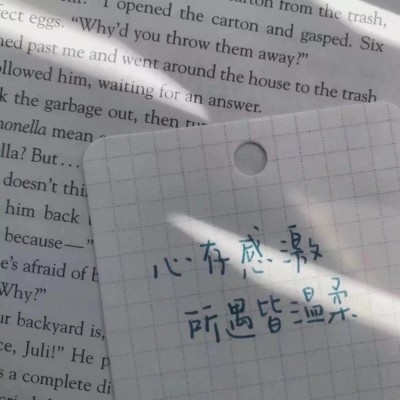 I opened the carton and gasped. Six
eggs. "Why'd you throw them away?"
past me and went around the house to the trash
him, waiting for an answer.
the garbage out, then
mean
But...
doesn't
him back
because—"
afraid of
Why?"
backyard is,
Juli!" He
a complete
心存感激
所遇皆温柔